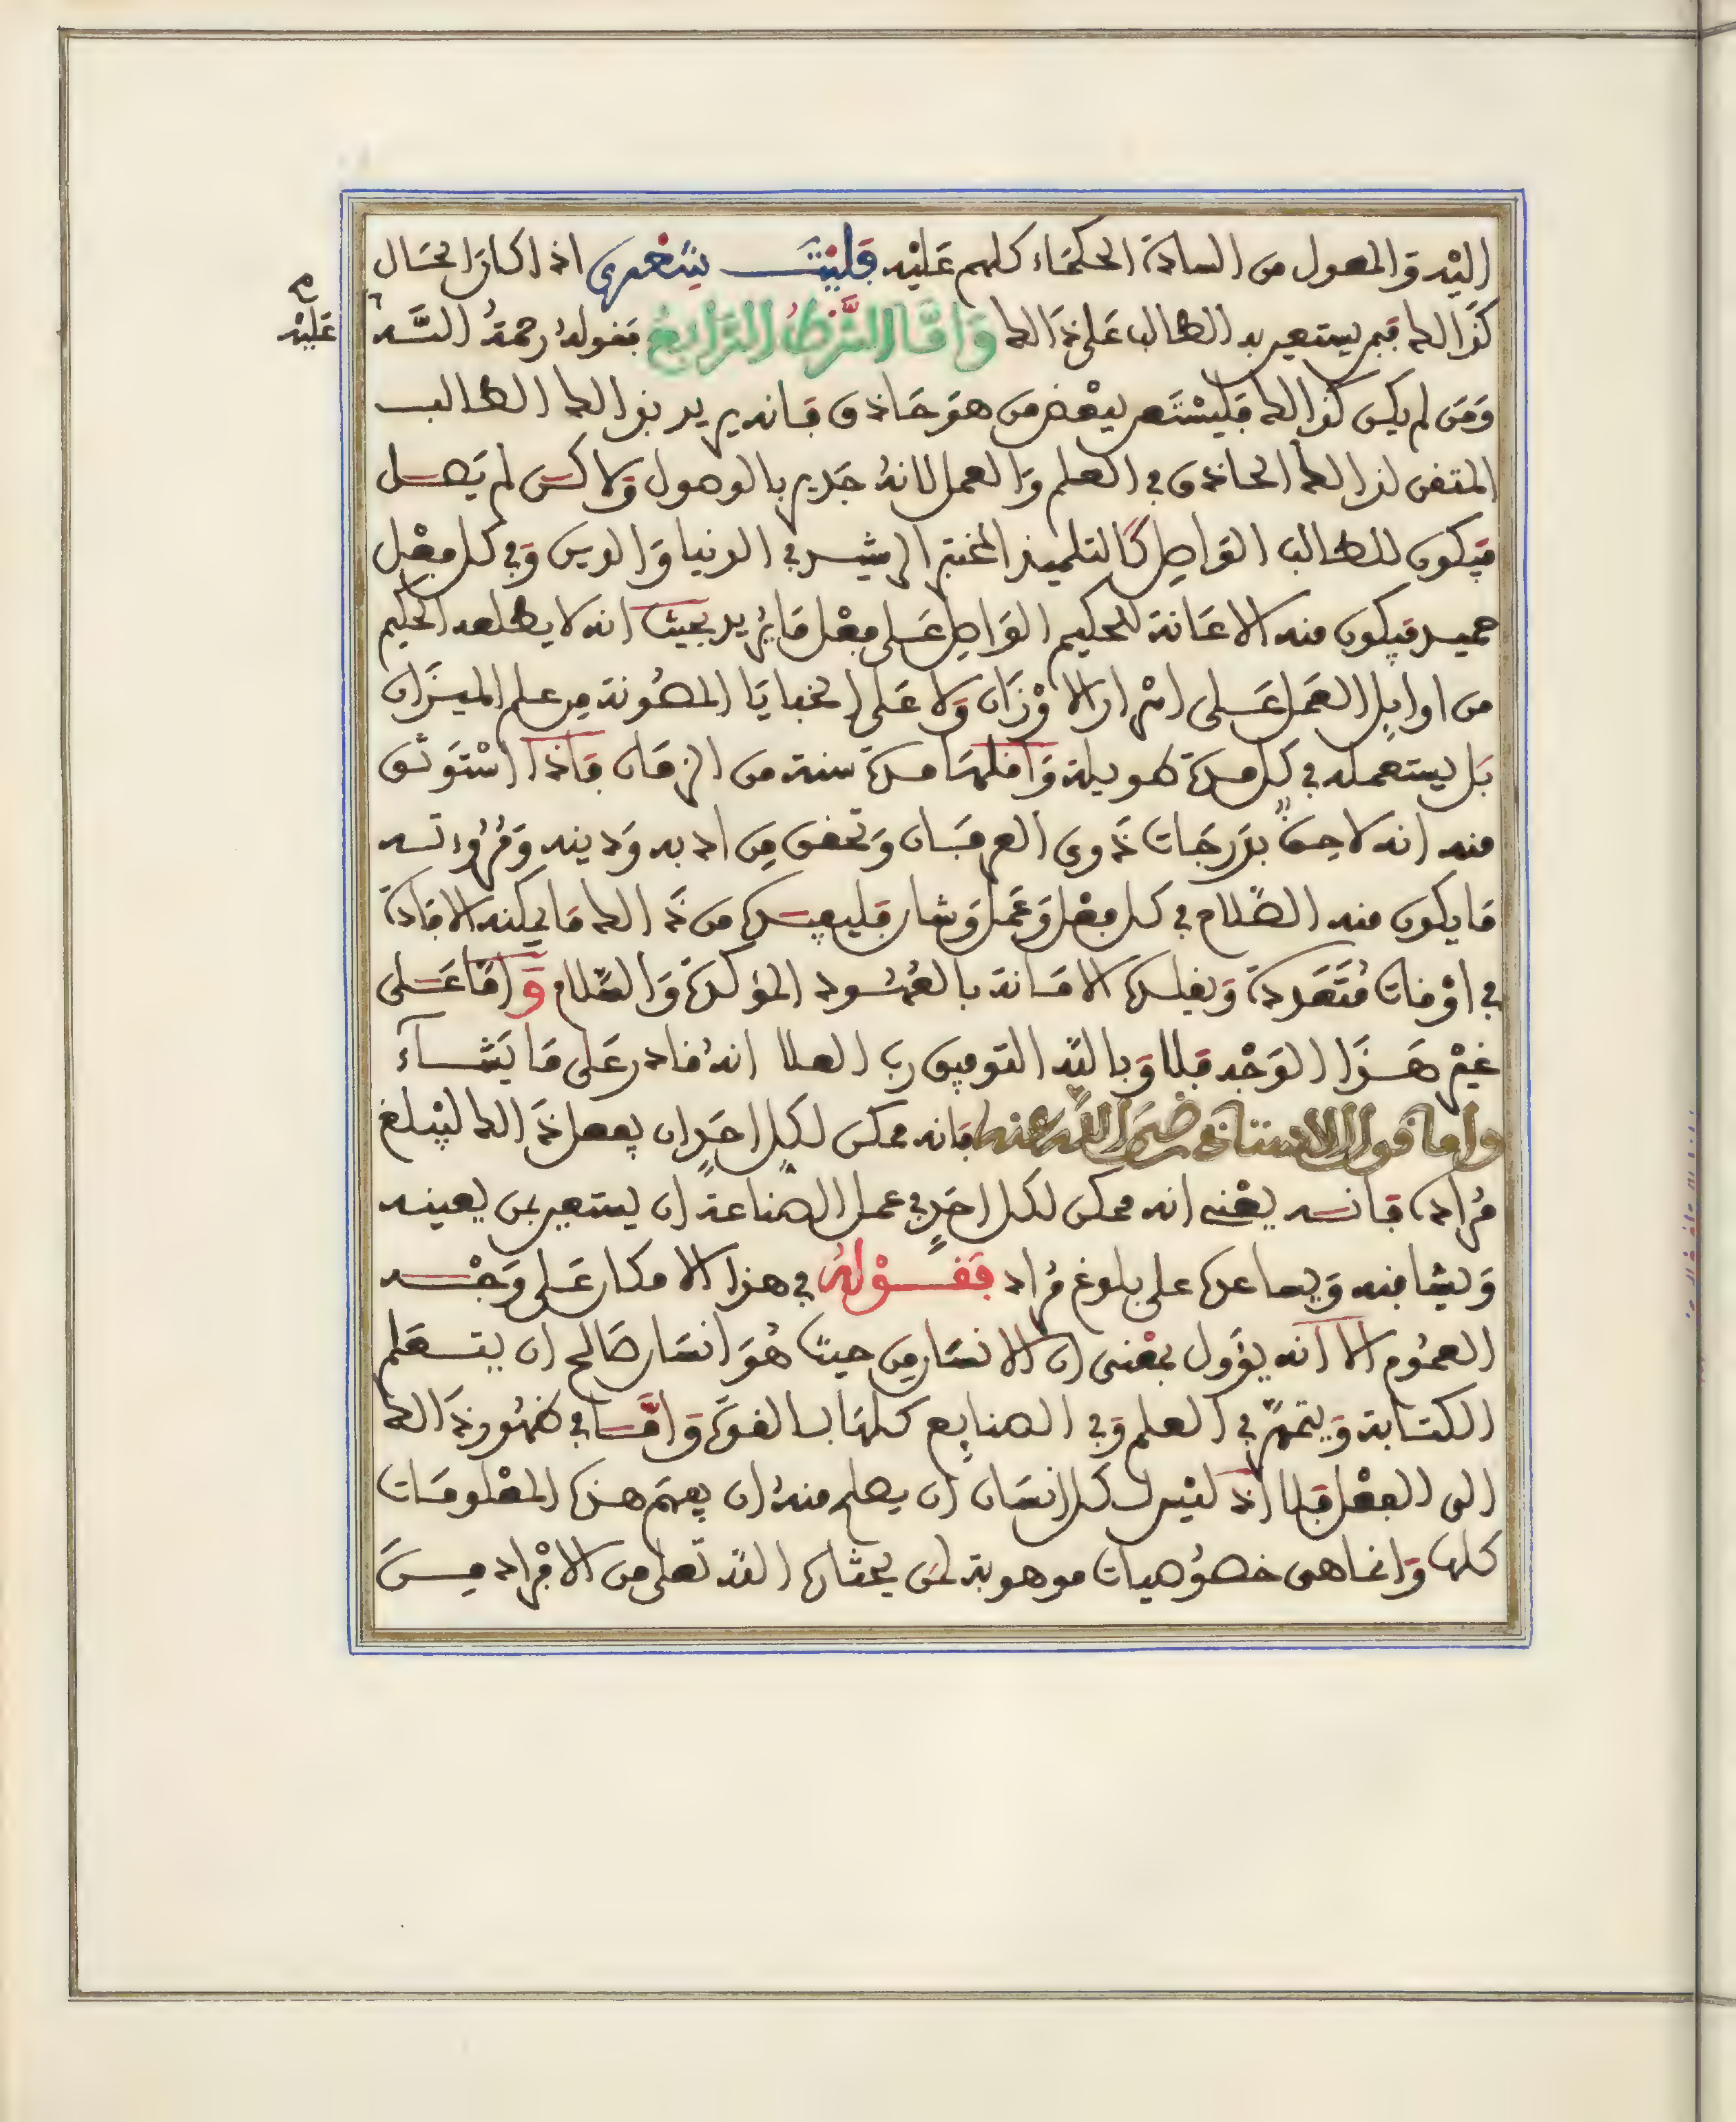 اليه والمعول من السادة الحكماء كلهم عليه فليت شعري اذا كان الحال
كذالك فبم يستعين به الطالب على ذالك وَاَمَّا الشَّرْطُ الرَّابِعُ فقوله رحمة الله
عليه
ومن لم يكن كذالك فليستعن ببعض من هو حاذق فانه يريد بذالك الطالب
المتقن لذالك الحاذق في العلم والعمل لانه جدير بالوصول ولاكن لم يصل
فيكون للطالب الواصل كالتلميذ المختبر الرشيد في الدنيا والدين وفي كل فعل
حميد فيكون منه الاعانة للحكيم الواصل على فعل ما يريد بحيث انه لا يطلعه الحكيم
من اوايل العمل على اسرار الاوزان ولا على الخبايا المصونة من علم الميزان
بل يستعمله في كل مدة طويلة واقلها مدة سنة من الزمان فاذا استوثق
منه انه لاحق بدرجات ذوي العرفان وتحقق من ادبه ودينه ومروءته
ما يكون منه الصلاح في كل فعل وعمل وشان فليفيده من ذالك ما يمكنه الافادة
في اوقات متعددة ويقلده الامانة بالعهود المؤكدة والصلاح واما على
غير هذا الوجه فلا وبالله التوفيق رب العلا انه قادر على ما يشآء
واما قول الاستاذ رضي الله عنه فانه ممكن لكل احد ان يفعل ذالك ليبلغ
مراده فانه يعني انه ممكن لكل احد في عمل الصناعة ان يستعين بمن يعينه
ويشافهه ويساعده على بلوغ مراد فقوله في هذا الامكان على وجه
العموم الا انه يؤول بمعنى ان الانسان من حيث هو انسان صالح ان يتعلم
الكتابة ويتمهر في العلم وفي الصنايع كلها بالقوة واما في ظهور ذالك
الى الفعل فلا اذ ليس كل انسان ان يعلم منه ان يفهم هذه المعلومات
كلها وانما هي خصوصيات موهوبة لمن يختاره الله تعلى من الافراد من